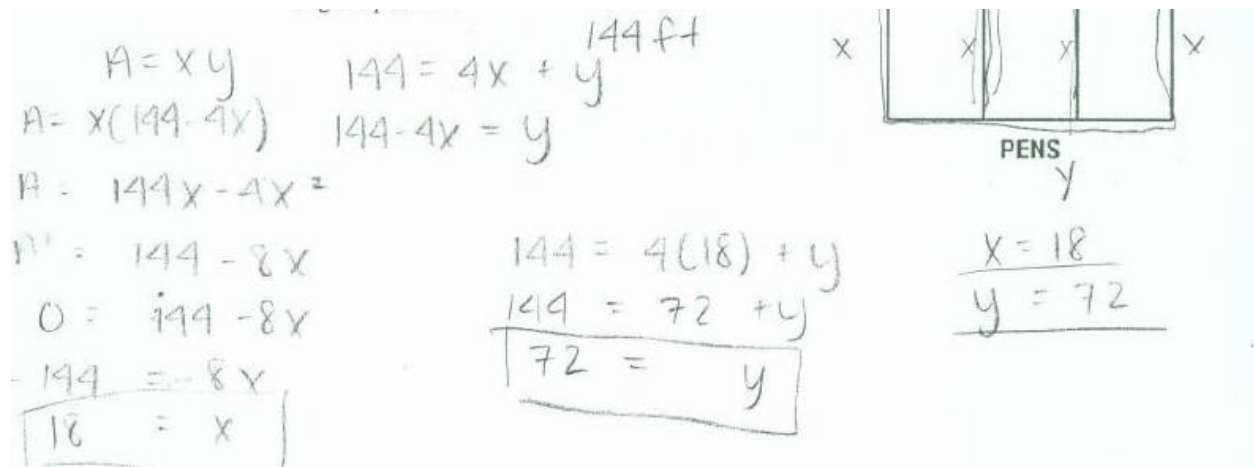 A = xy
A = x(144-4x)
A = 144x - 4x²
A' = 144 - 8x
0 = 144 - 8x
-144 = -8x
18 = x
144 ft
144 = 4x + y
144-4x = y
144 = 4(18) + y
144 = 72 + y
72 = y
x x x x
PENS
y
x = 18
y = 72